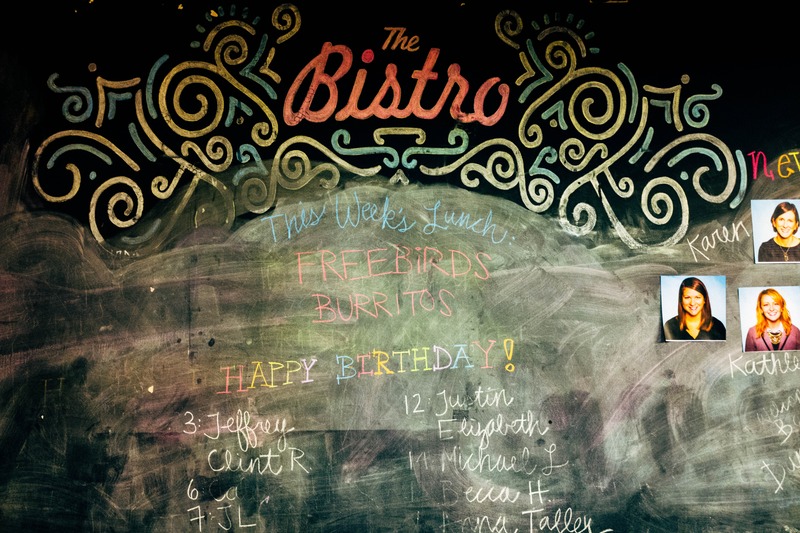 The
Bistro
This Week's Lunch:
FREEBIRDS
BURRITOS
HAPPY BIRTHDAY!
3: Jeffrey
Clint R.
6
7: JL
12: Justin
Elizabeth
Michael L
Becca H.
Anna Talley
Karen
Kathle